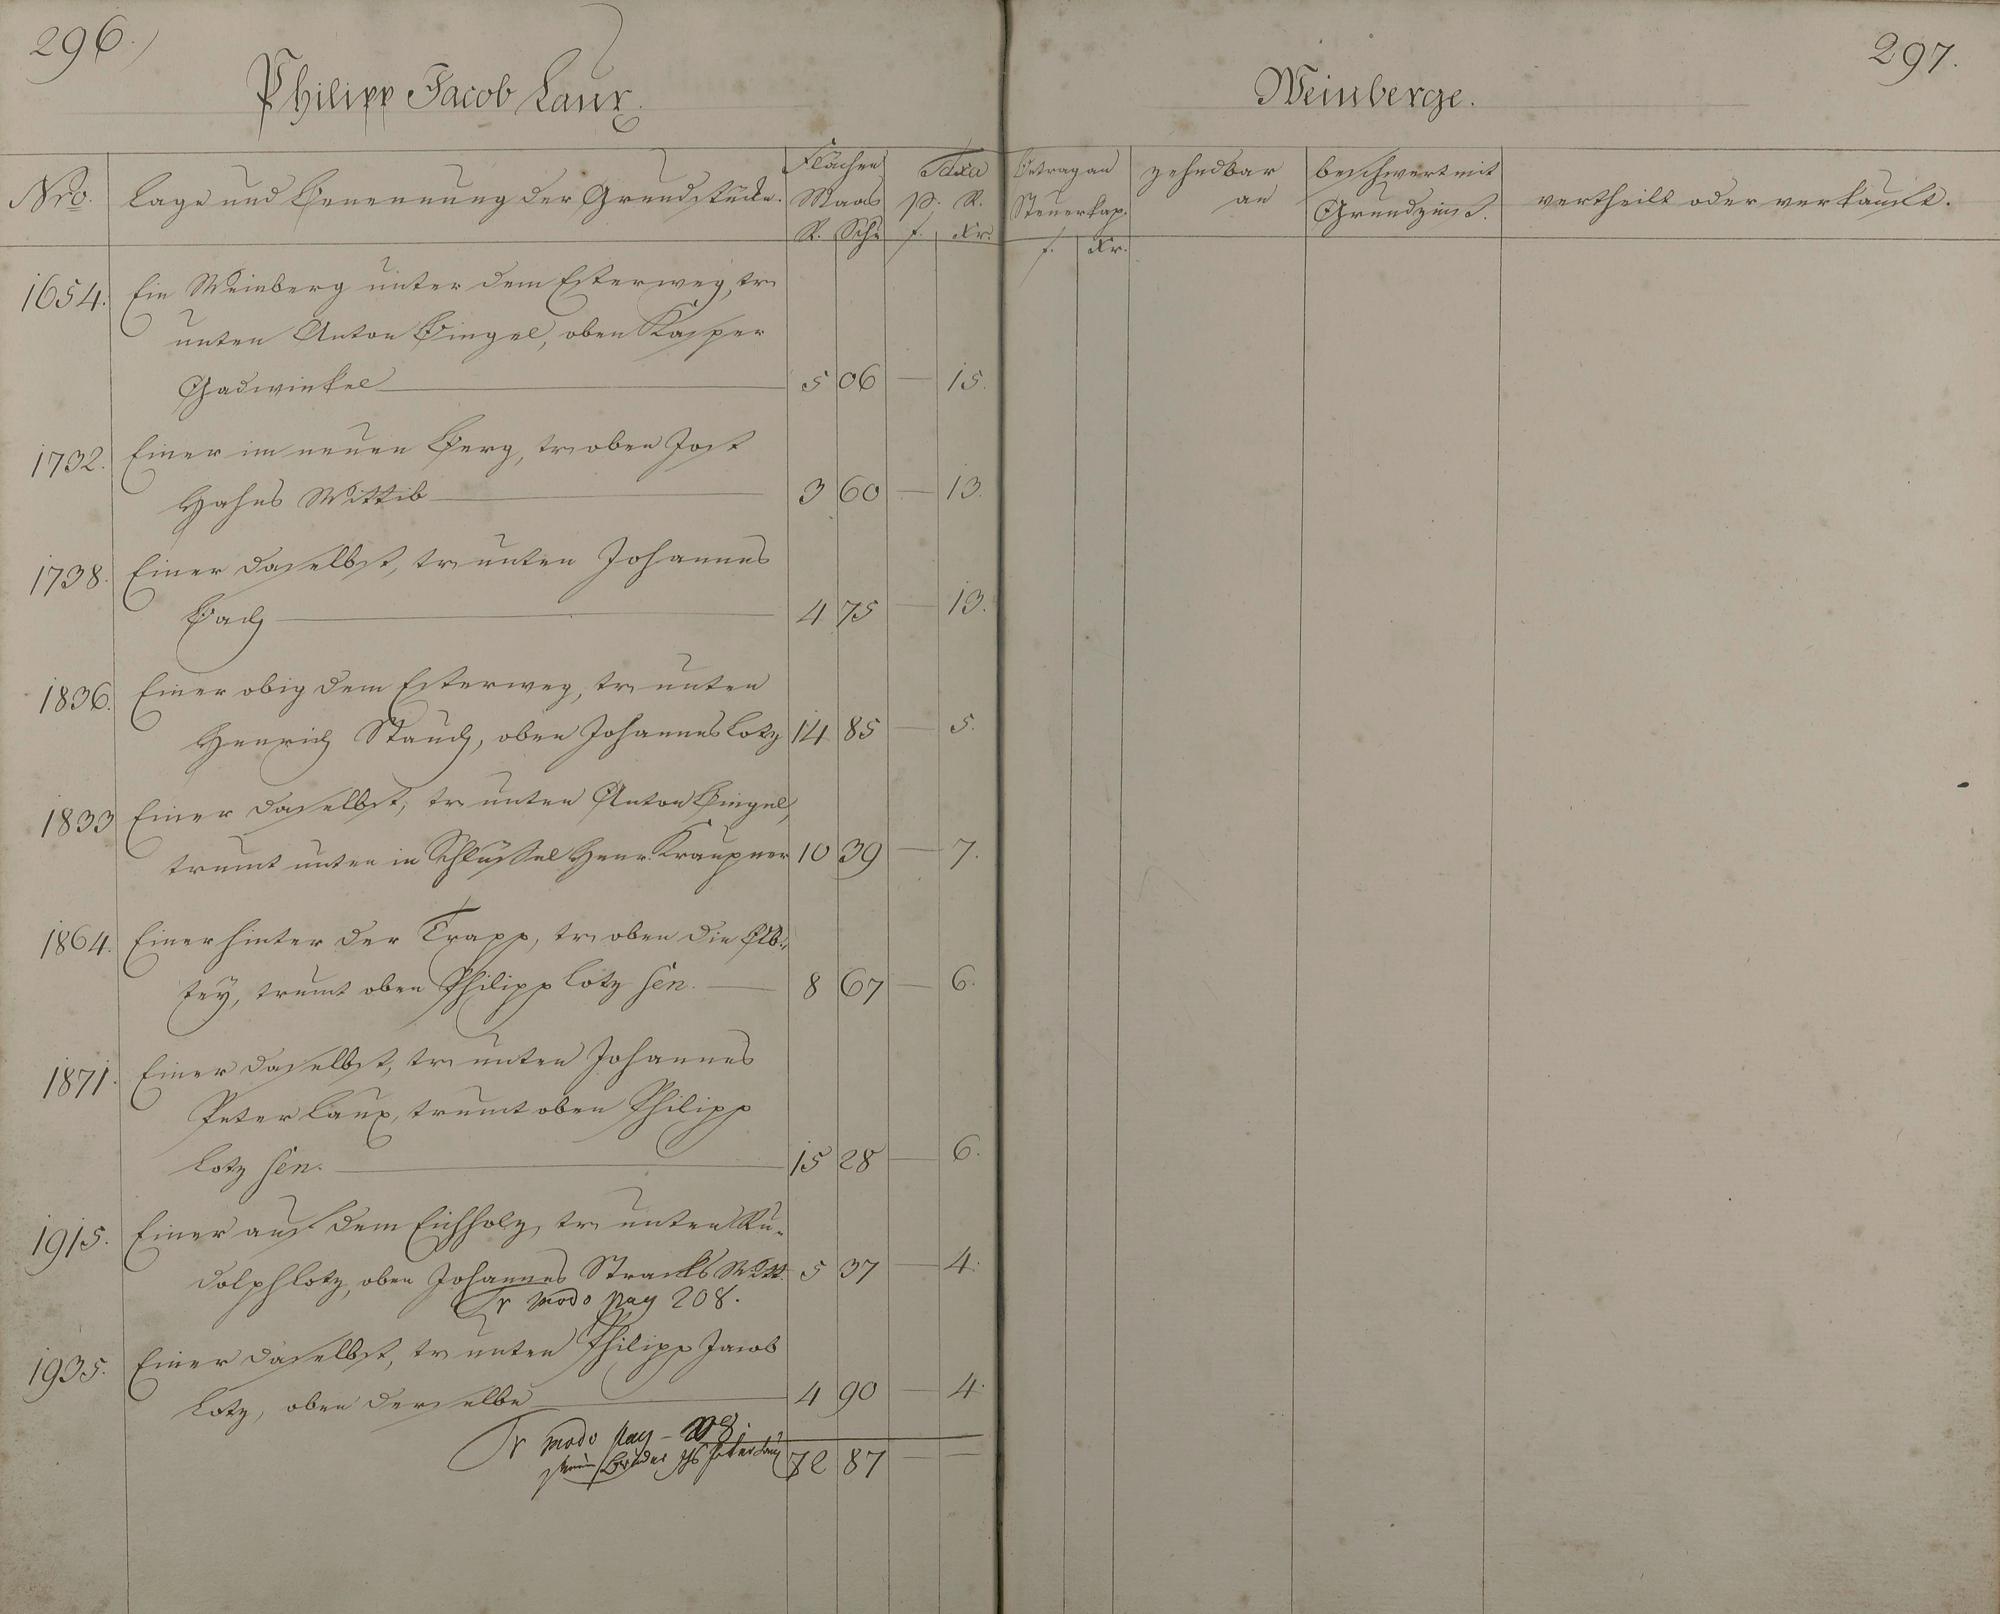 296.
Philipp Jacob Laux.
Nro. Lage und Benennung der Grundstücke. Flächen Maas R. Sch. Taxa p. R. f. Xr.
1654. Ein Weinberg unter dem Esterweg, tr.
unten Anton Bingel, oben Kasper
Gadwinkel 5 06 — 15.
1732. Einer im neuen Berg, tr. oben Jost
Hahns Wittib 3 60 — 13.
1738. Einer daselbst, tr. unten Johannes
Bach 4 75 — 13.
1836. Einer obig dem Esterweg, tr. unten
Henrich Stauch, oben Johannes Lotz 14 85 — 5.
1833 Einer daselbst, tr. unten Anton Bingel,
trumt unten in Schlüssel Henr. Kraupner 10 39 — 7.
1864. Einer hinter der Trapp, tr. oben die Ab-
tey, trumt oben Philipp Lotz sen. 8 67 — 6.
1871. Einer daselbst, tr. unten Johannes
Peter Laux, trumt oben Philipp
Lotz sen. 15 28 — 6.
1915. Einer auf dem Eichholz, tr. unten Ru-
dolph Lotz, oben Johannes Stracks Witt. 5 37 — 4.
Tr modo pag 208.
1935. Einer daselbst, tr. unten Philipp Jacob
Lotz, oben derselbe 4 90 — 4.
Tr modo pag
Bruder Peter Laux 72 87 — —
297.
Weinberge.
Betrag an Steuerkap. f. Xr. zehndbar an beschwert mit Grundzins. vertheilt oder verkauft.